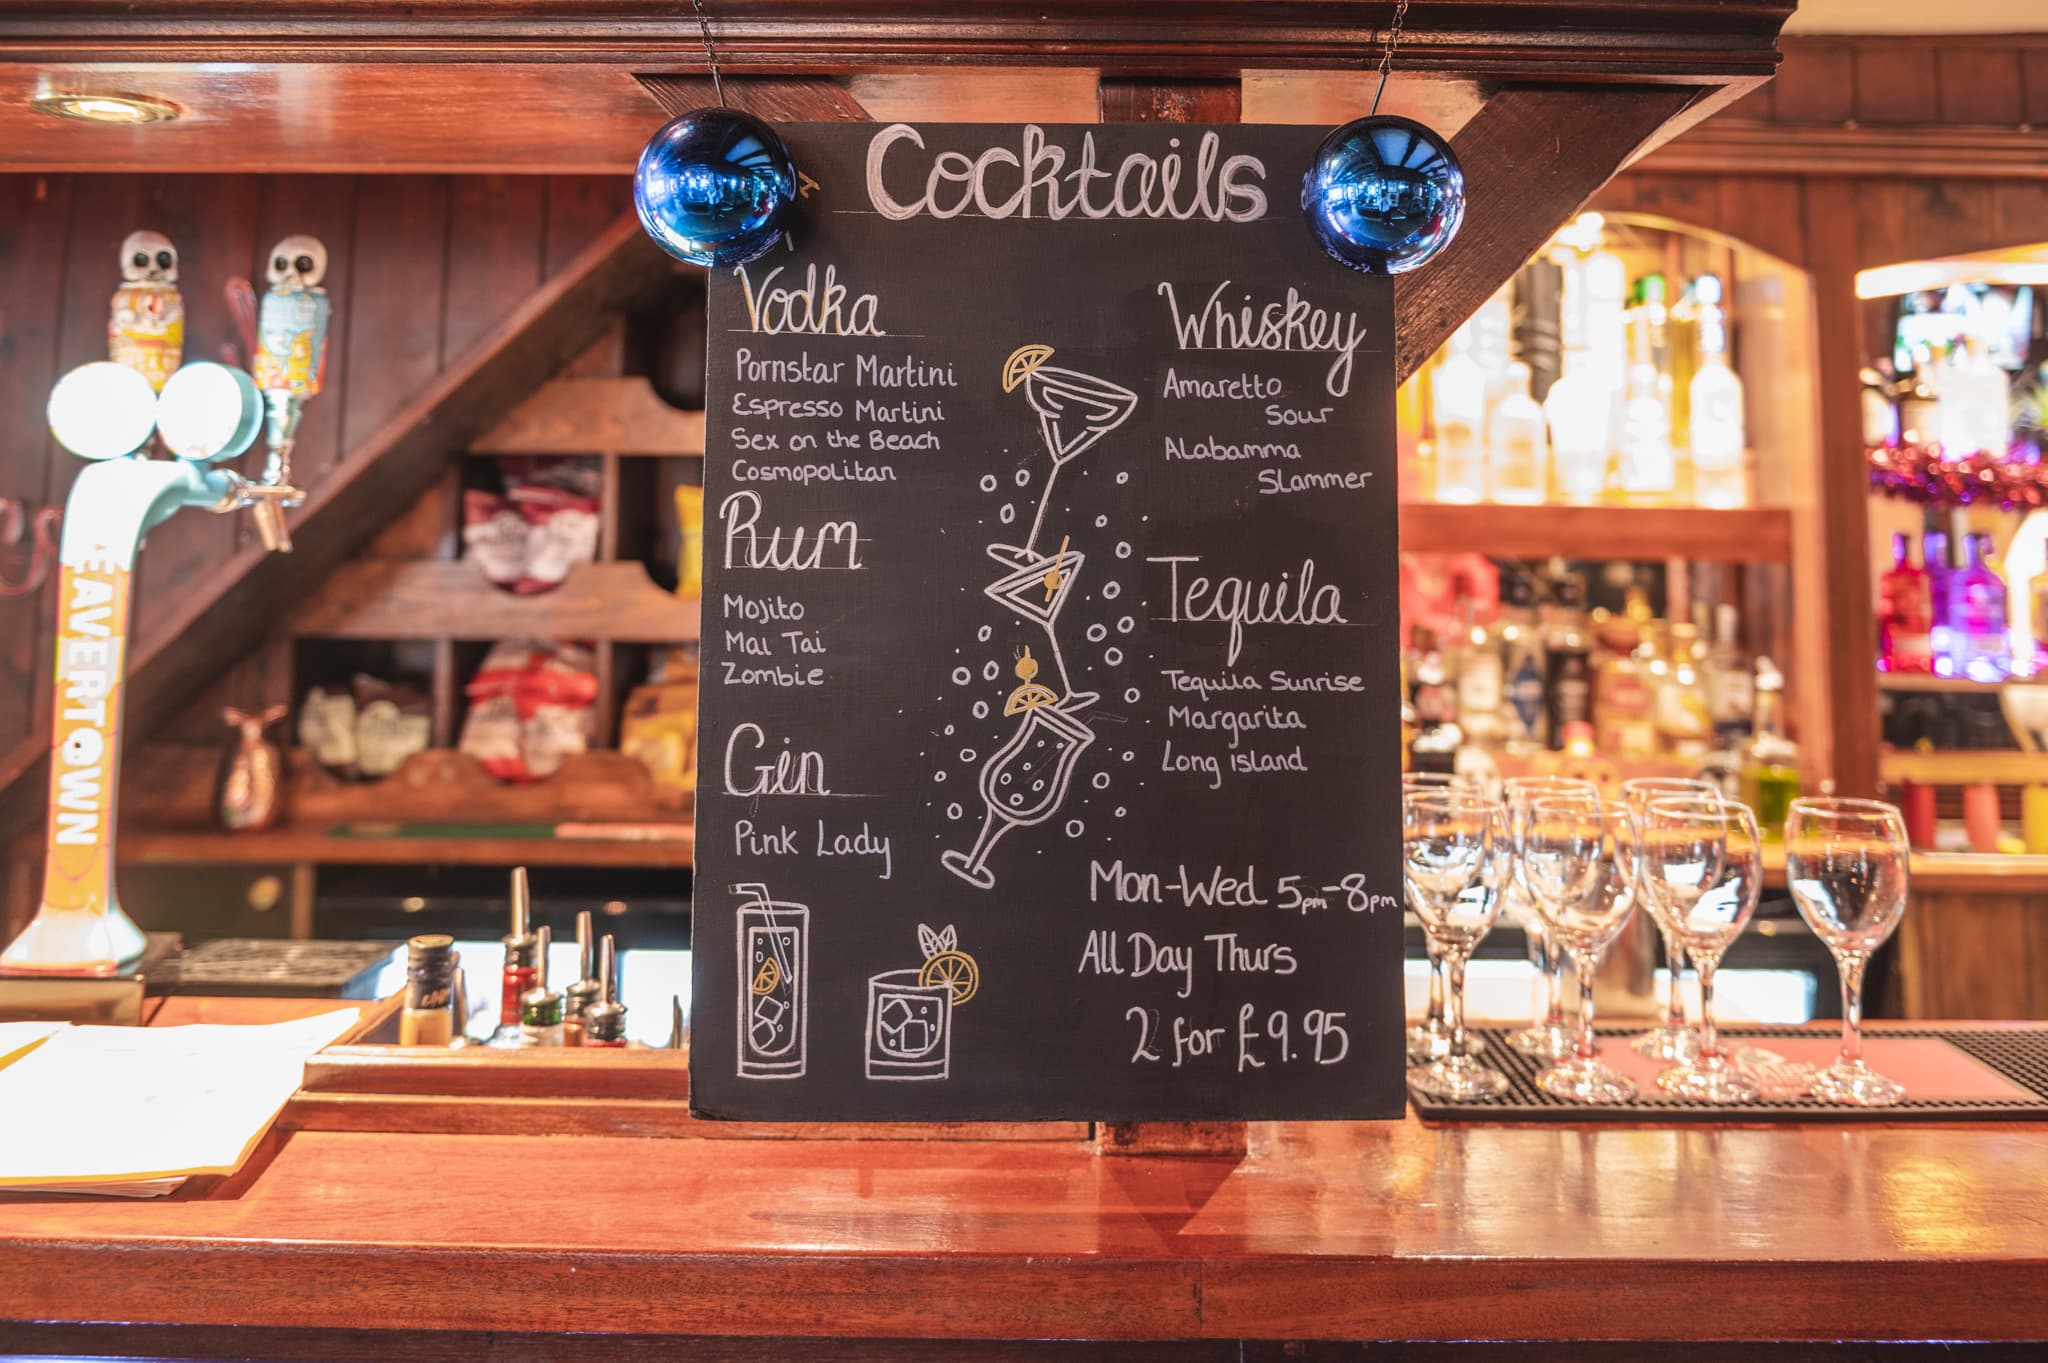 Cocktails
Vodka
Pornstar Martini
Espresso Martini
Sex on the Beach
Cosmopolitan
Rum
Mojito
Mai Tai
Zombie
Gin
Pink Lady
Whiskey
Amaretto
Sour
Alabamma
Slammer
Tequila
Tequila Sunrise
Margarita
Long Island
Mon-Wed 5pm-8pm
All Day Thurs
2 for £9.95
BEAVERTOWN